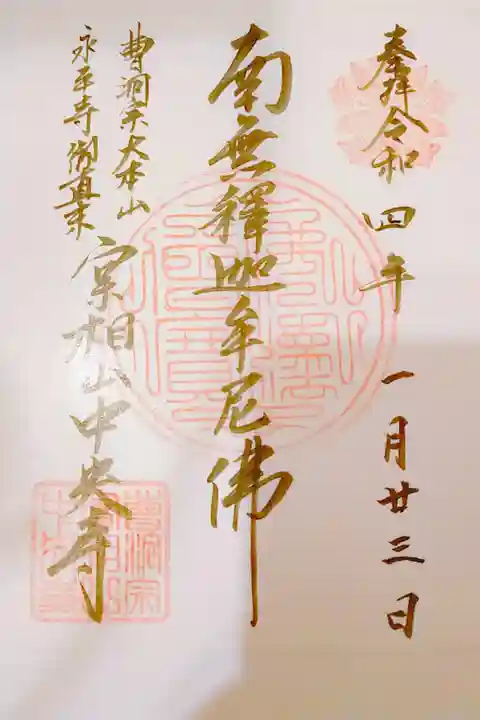 奉拝令和四年一月廿三日
南無釋迦牟尼佛
曹洞宗大本山
永平寺御直末
宗相山中央寺